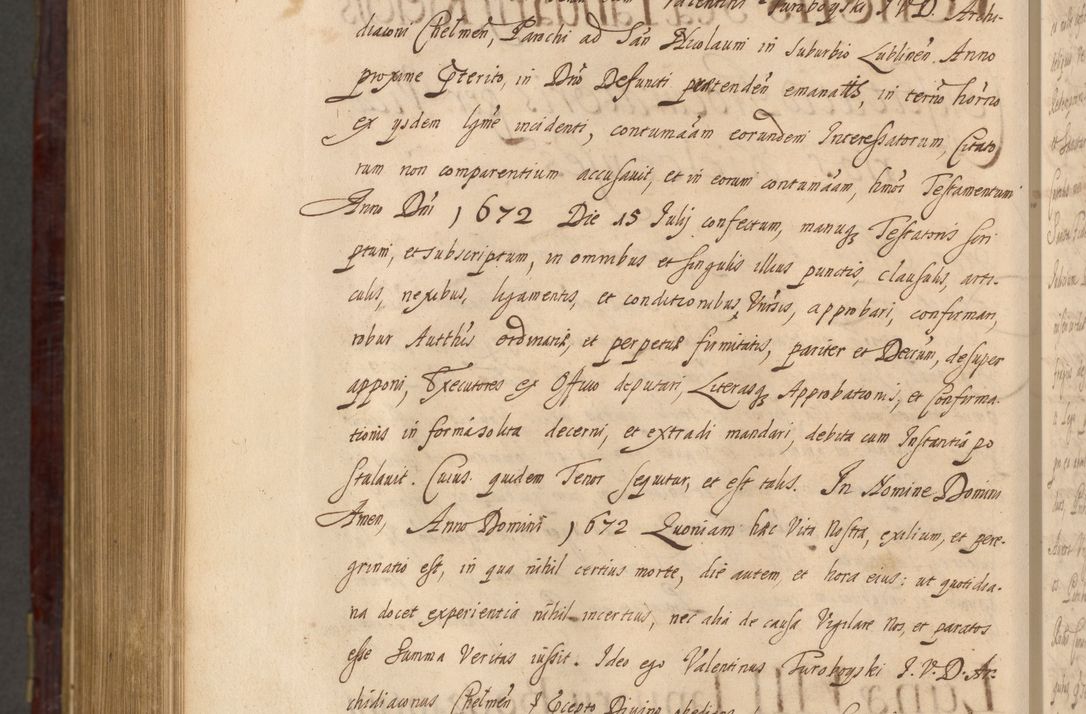 Valentini Turoboyski I.V.D. Archi-
diaconi Chelmen, Parochi ad San Nicolaum in suburbio Lublinen. Anno
proxime Pterito, in Dno Defuncti prætenden emanatis, in terno horno
ex ysdem lgme incidenti, contumaām eorundem Interessatorum, Citato
rum non comparentium accusavit, et in eorum contumaām, hmoi Testamentum
Anno Dni 1672 Die 15 Julij confectum, manuq Testatoris scri
ptum, et subscriptum, in omnibus et singulis illius punctis, clausulis, arti-
culis, nexibus, ligamentis, et conditionibus Vnisis, approbari, confirmari,
robur Autthis ordinariæ, et perpetuæ firmitatis, pariter et Decrūm, desuper
apponi, Executores ex Officio deputari, Literasq Approbationis, et Confirma-
tionis in forma solita decerni, et extradi mandari, debita cum Instantia po
stulavit. Cuius quidem Tenor sequitur, et est talis. In Nomine Domini
Amen, Anno Domini 1672 Quoniam hæc Vita Nostra, exilium, et pere-
grinatio est, in qua nihil certius morte, die autem, et hora eius: ut quotidia-
na docet experientia nihil incertius, nec alia de causa Vigilare nos, et paratos
esse Summa Veritas iussit. Ideo ego Valentinus Turoboyski I.V.D. Ar-
chidiaconus Chelmen